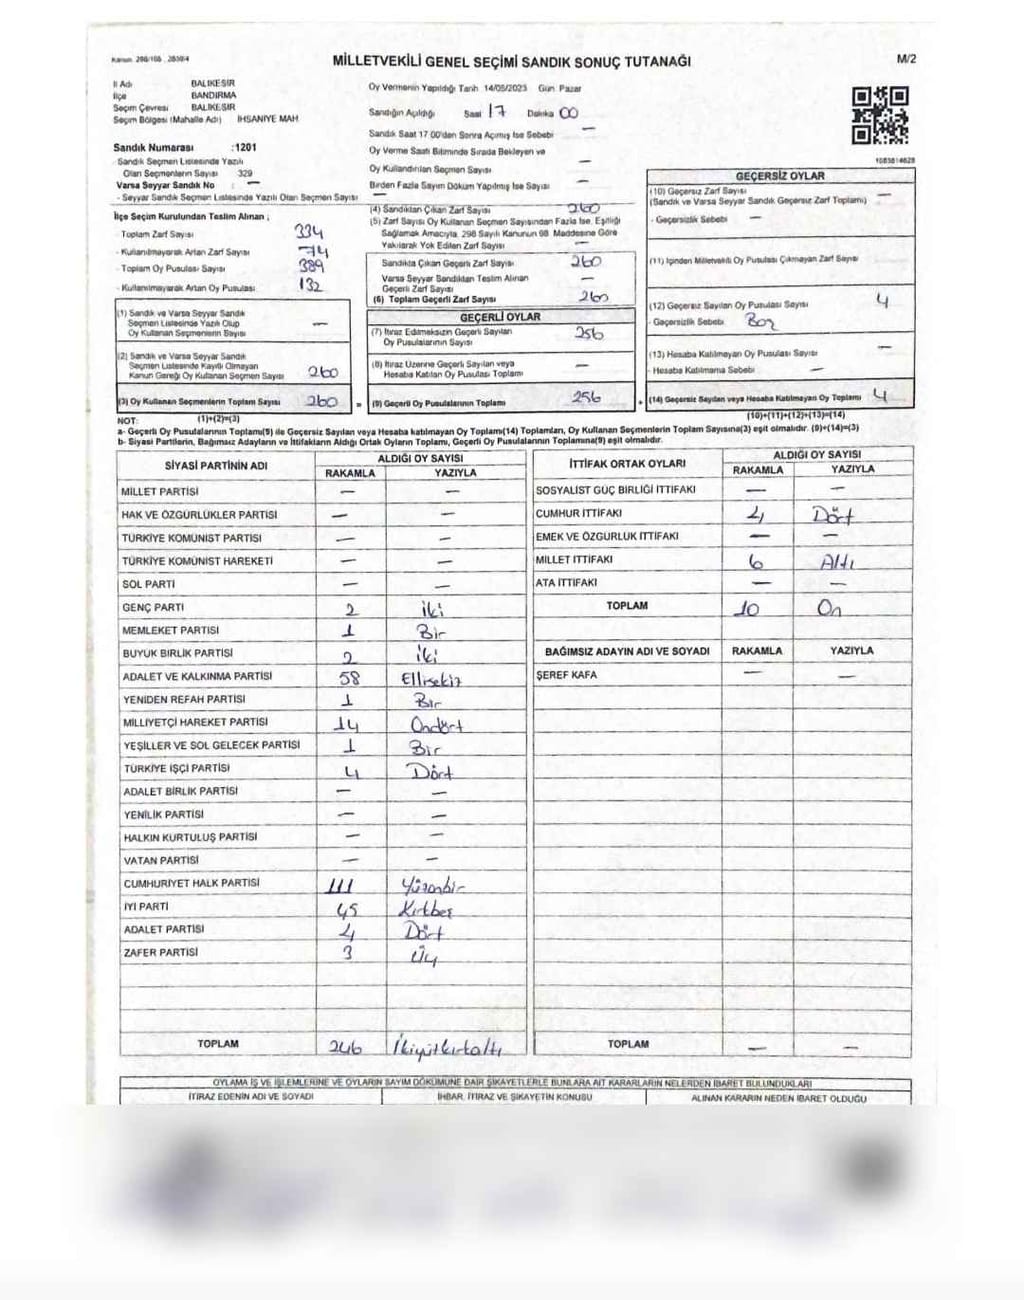 Kanun: 298/105 , 2839/4
MİLLETVEKİLİ GENEL SEÇİMİ SANDIK SONUÇ TUTANAĞI
M/2
İl Adı BALIKESİR
İlçe BANDIRMA
Seçim Çevresi BALIKESİR
Seçim Bölgesi (Mahalle Adı) İHSANİYE MAH
Sandık Numarası :1201
Sandık Seçmen Listesinde Yazılı
Olan Seçmenlerin Sayısı 329
Varsa Seyyar Sandık No : —
- Seyyar Sandık Seçmen Listesinde Yazılı Olan Seçmen Sayısı —
Oy Vermenin Yapıldığı Tarih 14/05/2023 Gün Pazar
Sandığın Açıldığı Saat 17 Dakika 00
Sandık Saat 17 00'den Sonra Açılmış İse Sebebi —
Oy Verme Saati Bitiminde Sırada Bekleyen ve
Oy Kullandırılan Seçmen Sayısı —
Birden Fazla Sayım Döküm Yapılmış İse Sayısı —
1083814628
İlçe Seçim Kurulundan Teslim Alınan ;
- Toplam Zarf Sayısı 334
- Kullanılmayarak Artan Zarf Sayısı 74
- Toplam Oy Pusulası Sayısı 389
- Kullanılmayarak Artan Oy Pusulası 132
(1) Sandık ve Varsa Seyyar Sandık
Seçmen Listesinde Yazılı Olup
Oy Kullanan Seçmenlerin Sayısı —
(2) Sandık ve Varsa Seyyar Sandık
Seçmen Listesinde Kayıtlı Olmayan
Kanun Gereği Oy Kullanan Seçmen Sayısı 260
(3) Oy Kullanan Seçmenlerin Toplam Sayısı 260 =
(1)+(2)=(3)
(4) Sandıktan Çıkan Zarf Sayısı 260
(5) Zarf Sayısı Oy Kullanan Seçmen Sayısından Fazla İse, Eşitliği
Sağlamak Amacıyla, 298 Sayılı Kanunun 98 Maddesine Göre
Yakılarak Yok Edilen Zarf Sayısı —
Sandıkta Çıkan Geçerli Zarf Sayısı 260
Varsa Seyyar Sandıktan Teslim Alınan
Geçerli Zarf Sayısı —
(6) Toplam Geçerli Zarf Sayısı 260
GEÇERLİ OYLAR
(7) İtiraz Edilmeksizin Geçerli Sayılan
Oy Pusulalarının Sayısı 256
(8) İtiraz Üzerine Geçerli Sayılan veya
Hesaba Katılan Oy Pusulası Toplamı —
(9) Geçerli Oy Pusulalarının Toplamı 256 +
GEÇERSİZ OYLAR
(10) Geçersiz Zarf Sayısı —
(Sandık ve Varsa Seyyar Sandık Geçersiz Zarf Toplamı)
- Geçersizlik Sebebi —
(11) İçinden Milletvekili Oy Pusulası Çıkmayan Zarf Sayısı
(12) Geçersiz Sayılan Oy Pusulası Sayısı 4
- Geçersizlik Sebebi Boş
(13) Hesaba Katılmayan Oy Pusulası Sayısı —
- Hesaba Katılmama Sebebi —
(14) Geçersiz Sayılan veya Hesaba Katılmayan Oy Toplamı 4
(10)+(11)+(12)+(13)=(14)
NOT:
a- Geçerli Oy Pusulalarının Toplamı(9) ile Geçersiz Sayılan veya Hesaba katılmayan Oy Toplamı(14) Toplamları, Oy Kullanan Seçmenlerin Toplam Sayısına(3) eşit olmalıdır. (9)+(14)=(3)
b- Siyasi Partilerin, Bağımsız Adayların ve İttifakların Aldığı Ortak Oyların Toplamı, Geçerli Oy Pusulalarının Toplamına(9) eşit olmalıdır.
SİYASİ PARTİNİN ADI ALDIĞI OY SAYISI
RAKAMLA YAZIYLA
MİLLET PARTİSİ — —
HAK VE ÖZGÜRLÜKLER PARTİSİ — —
TÜRKİYE KOMÜNİST PARTİSİ — —
TÜRKİYE KOMÜNİST HAREKETİ — —
SOL PARTİ — —
GENÇ PARTİ 2 İki
MEMLEKET PARTİSİ 1 Bir
BÜYÜK BİRLİK PARTİSİ 2 İki
ADALET VE KALKINMA PARTİSİ 58 Ellisekiz
YENİDEN REFAH PARTİSİ 1 Bir
MİLLİYETÇİ HAREKET PARTİSİ 14 Ondört
YEŞİLLER VE SOL GELECEK PARTİSİ 1 Bir
TÜRKİYE İŞÇİ PARTİSİ 4 Dört
ADALET BİRLİK PARTİSİ — —
YENİLİK PARTİSİ — —
HALKIN KURTULUŞ PARTİSİ — —
VATAN PARTİSİ — —
CUMHURİYET HALK PARTİSİ 111 Yüzonbir
İYİ PARTİ 45 Kırkbeş
ADALET PARTİSİ 4 Dört
ZAFER PARTİSİ 3 Üç
TOPLAM 246 İkiyüzkırkaltı
İTTİFAK ORTAK OYLARI ALDIĞI OY SAYISI
RAKAMLA YAZIYLA
SOSYALİST GÜÇ BİRLİĞİ İTTİFAKI — —
CUMHUR İTTİFAKI 4 Dört
EMEK VE ÖZGÜRLÜK İTTİFAKI — —
MİLLET İTTİFAKI 6 Altı
ATA İTTİFAKI — —
TOPLAM 10 On
BAĞIMSIZ ADAYIN ADI VE SOYADI RAKAMLA YAZIYLA
ŞEREF KAFA — —
TOPLAM — —
OYLAMA İŞ VE İŞLEMLERİNE VE OYLARIN SAYIM DÖKÜMÜNE DAİR ŞİKAYETLERLE BUNLARA AİT KARARLARIN NELERDEN İBARET BULUNDUKLARI
İTİRAZ EDENİN ADI VE SOYADI İHBAR, İTİRAZ VE ŞİKAYETİN KONUSU ALINAN KARARIN NEDEN İBARET OLDUĞU